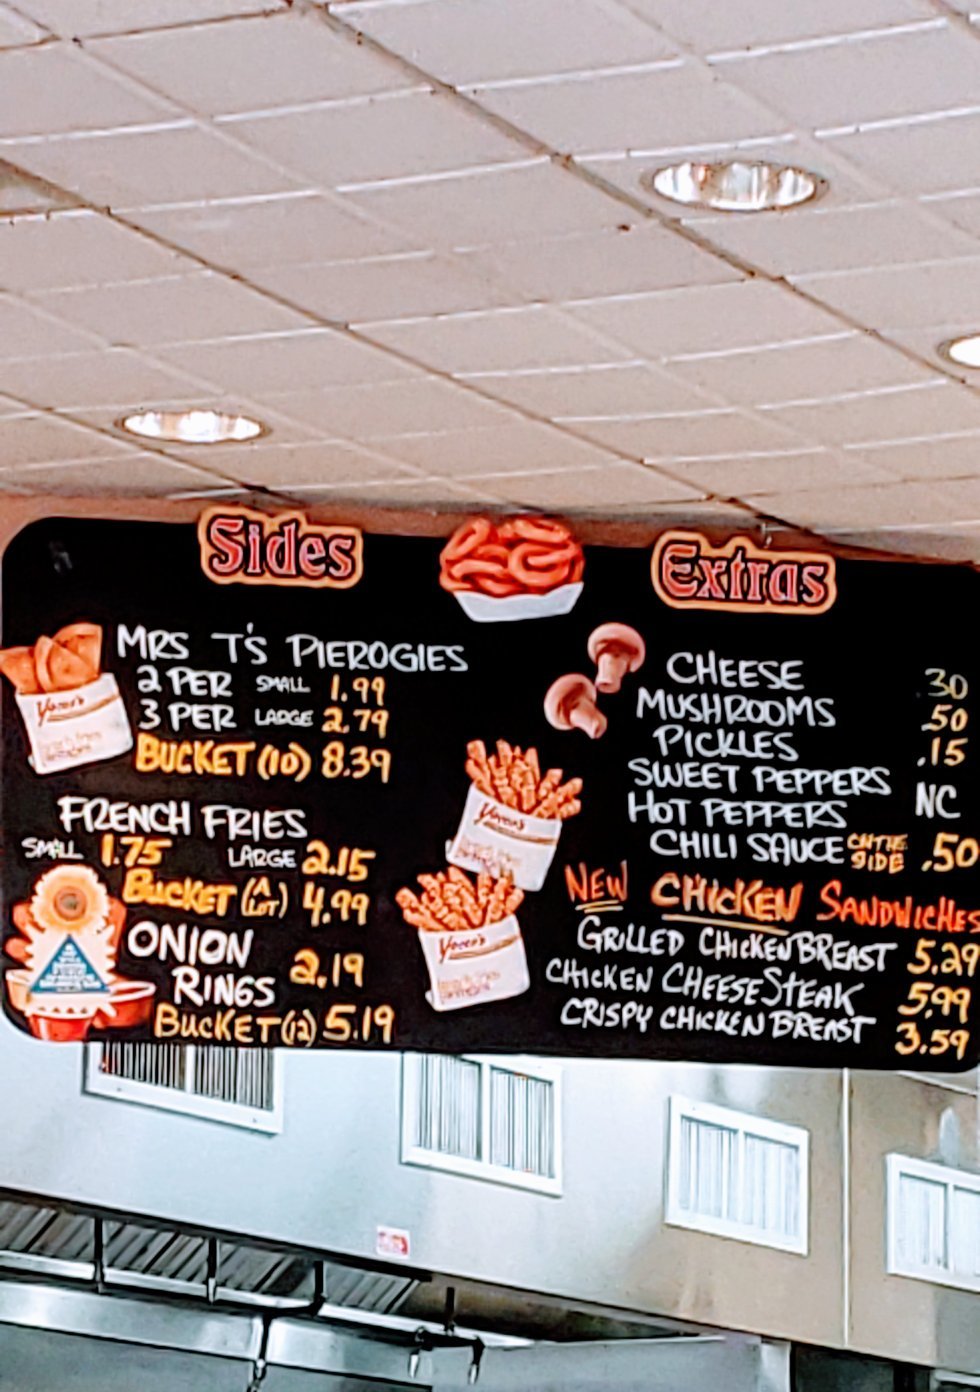 Sides
MRS T'S PIEROGIES
2 PER SMALL 1.99
3 PER LARGE 2.79
BUCKET (10) 8.39
FRENCH FRIES
SMALL 1.75 LARGE 2.15
BUCKET (A LOT) 4.99
ONION
RINGS 2.19
BUCKET (12) 5.19
Extras
CHEESE 30
MUSHROOMS .50
PICKLES .15
SWEET PEPPERS
HOT PEPPERS NC
CHILI SAUCE ON THE SIDE .50
NEW CHICKEN SANDWICHES
GRILLED CHICKEN BREAST 5.29
CHICKEN CHEESESTEAK 5.99
CRISPY CHICKEN BREAST 3.59
Yocco's
Yocco's
Yocco's